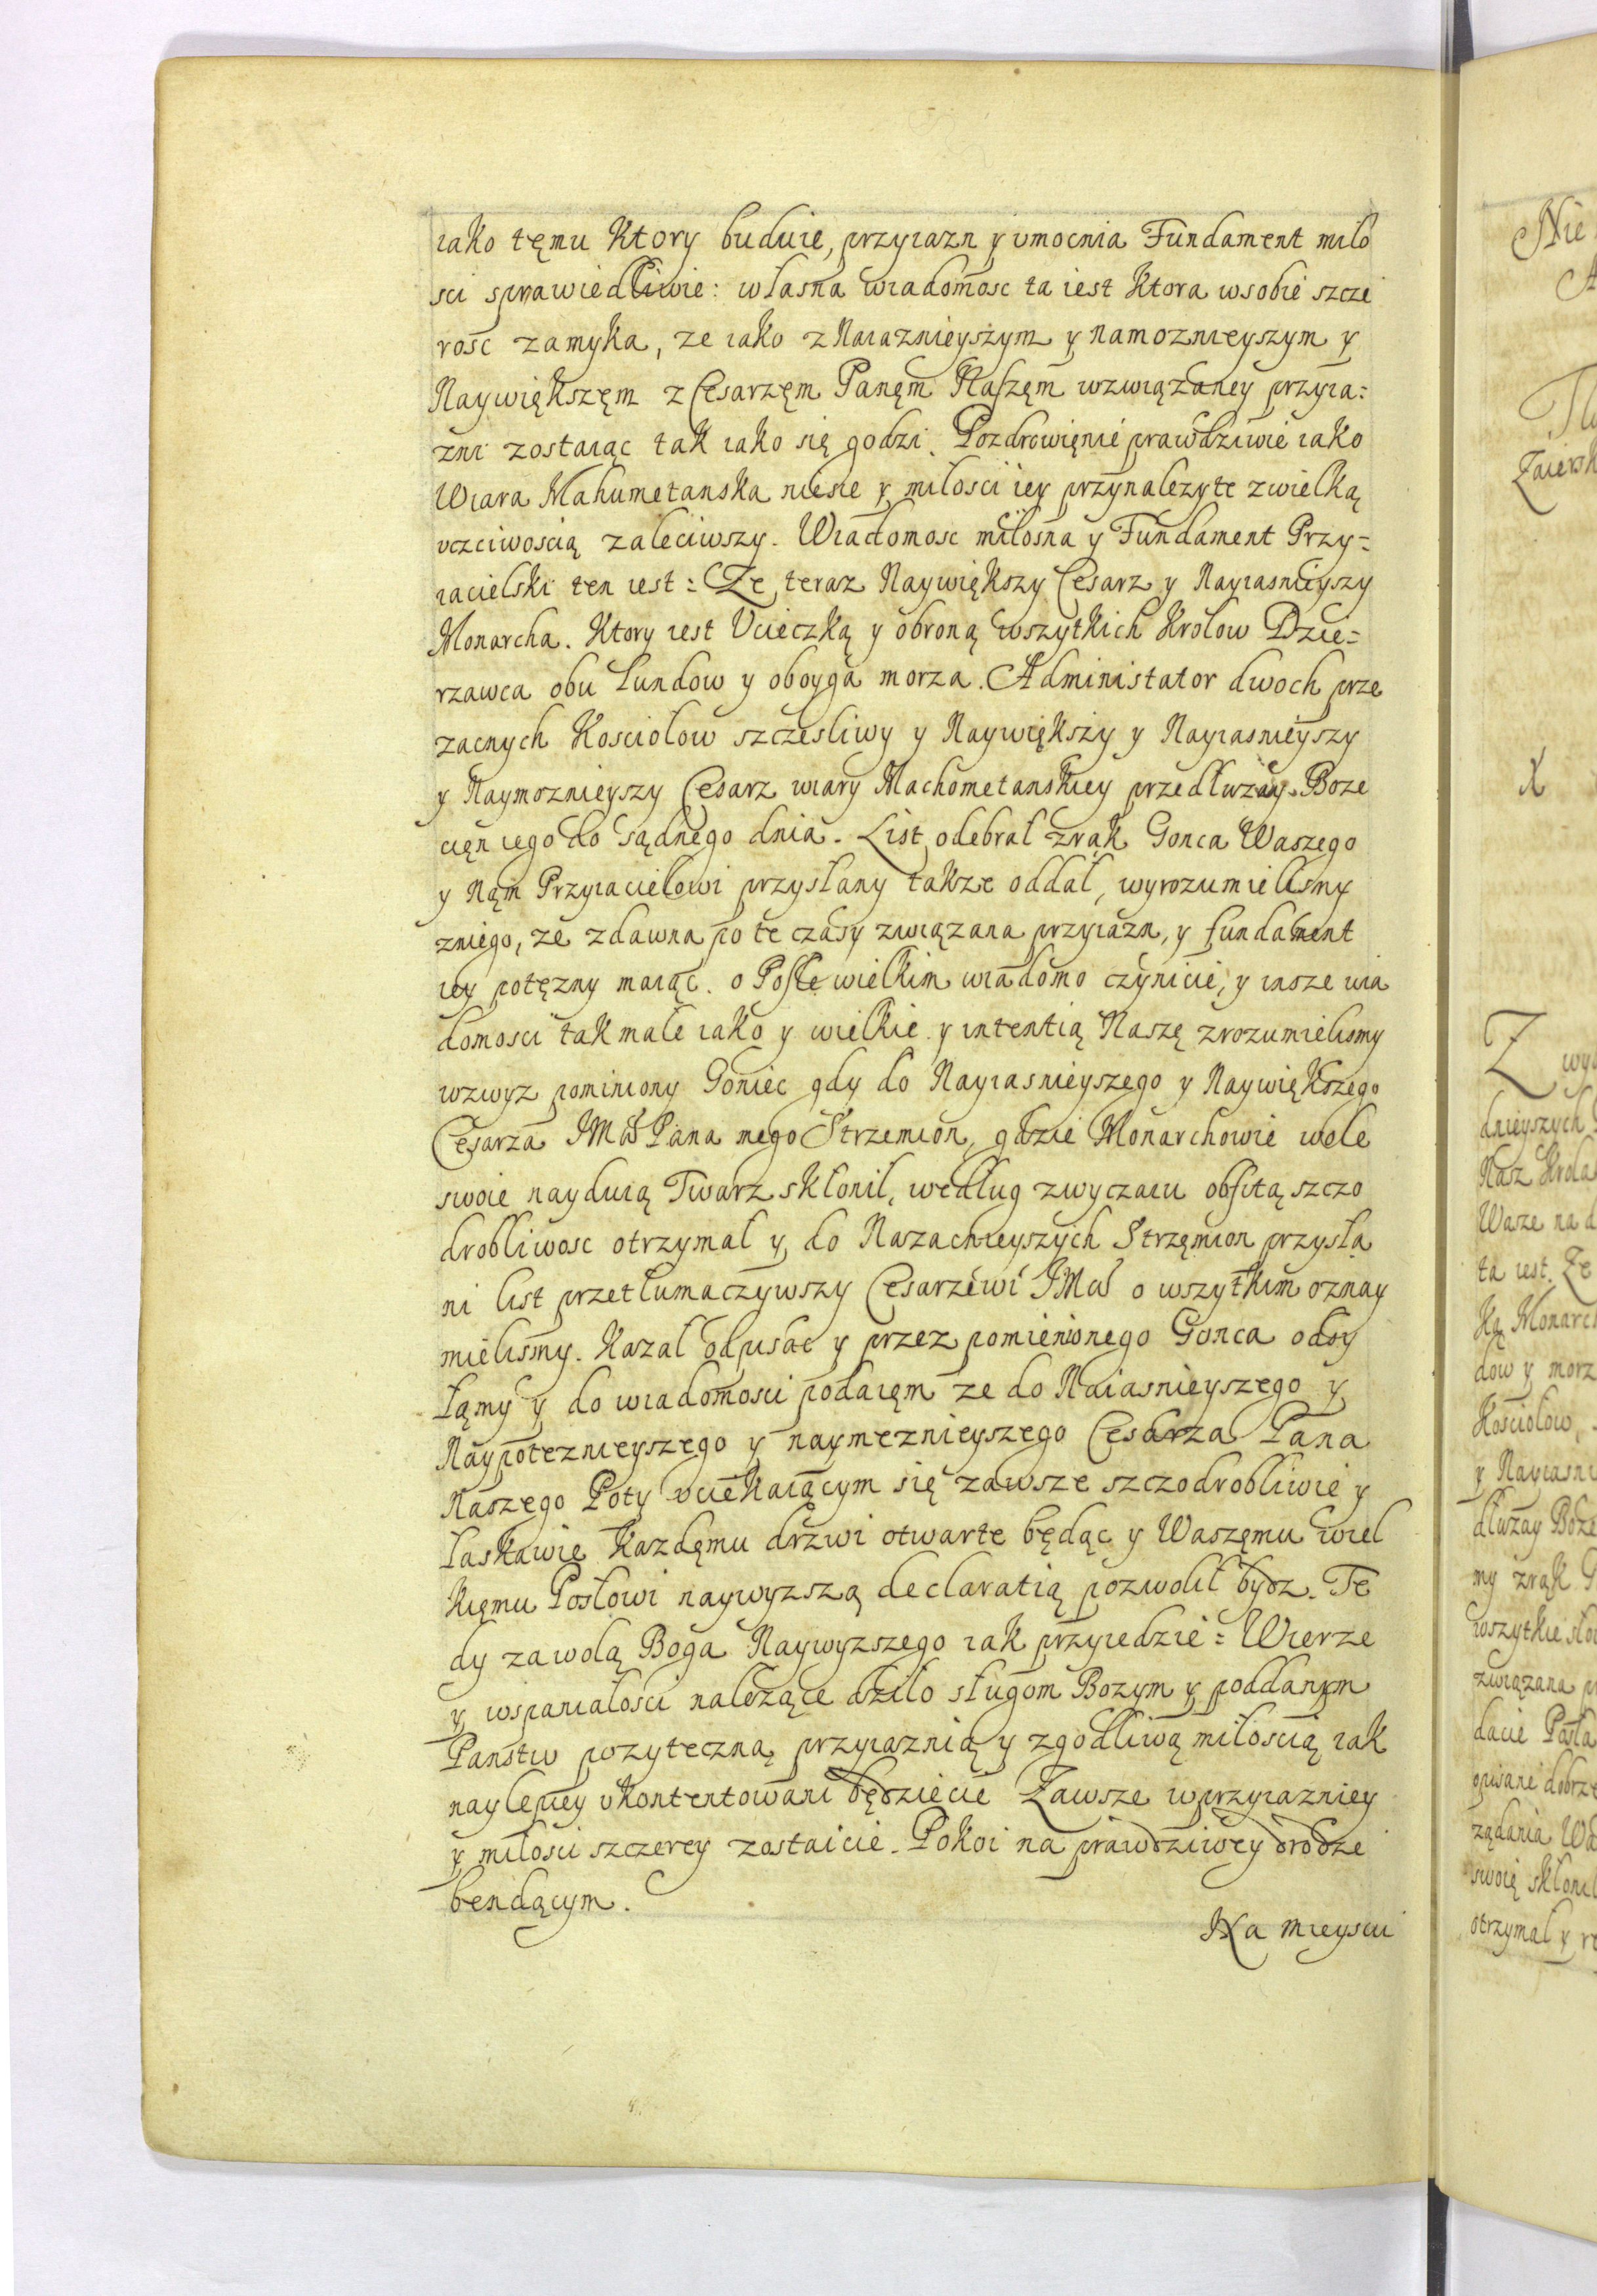 iako tęmu Ktory buduie, przyiazn y vmocnia Fundament miło
sci sprawiedliwie: własna wiadomosc ta iest Ktora wsobie szcze
rosc zamyka, ze iako z Naiaznieyszym y namoznieyszym y
Naywiększęm z Cesarzęm Panęm Naszęm wzwiązaney przyia=
zni zostaiąc tak iako się godzi. Pozdrowięnie prawdziwie iako
Wiara Mahumetanska niesie y miłosci iey przynalezyte zwielką
vczciwoscią zaleciwszy. Wiadomosc miłosna y Fundament Przy=
iacielski ten iest: Ze teraz Naywiększy Cesarz y Nayiasnieyszy
Monarcha. Ktory iest Vcieczką y obroną wszytkich Krolow Dzie=
rzawca obu Lundow y oboyga morza. Administator dwoch prze
zacnych Kosciołow szczesliwy y Naywiększy y Nayiasnieyszy
y Naymoznieyszy Cesarz wiary Machometanskiey przedłuzay Boze
cięn iego do sądnego dnia. List odebrał zrąk Gonca Waszego
y Nąm Przyiacielowi przysłany takze oddał, wyrozumielismy
zniego, ze zdawna po te czasy związana przyiazn, y fundament
iey potęzny maiąc. o Posle wielkim wiadomo czynicie, y insze wia
domosci tak małe iako y wielkie y intentią Naszę zrozumielismy
wzwyz pominiony Goniec gdy do Nayiasnieyszego y Naywiększego
Cesarza JMci Pana mego Strzemion, gdzie Monarchowie wole
swoie nayduią Twarz skłonił, według zwyczaiu obfitą szczo
drobliwosc otrzymał y do Naszachieyszych Strzęmion przysła
ni list przetłumaczywszy Cesarzewi JMci o wszytkim oznay
mielismy. Kazał odpisac y przez pomienionego Gonca odsy
łąmy y do wiadomosci podaięm ze do Naiasnieyszego y
Naypoteznieyszego y naymeznieyszego Cesarza Pana
Naszego Poty vciekaiącym się zawsze szczodrobliwie y
łaskawie Kazdęmu drzwi otwarte będąc y Waszęmu wiel
kięmu Posłowi naywyzszą declaratią pozwolił bydz. Te
dy zawolą Boga Naywyzszego iak przyiedzie: Wierze
y wspaniałosci nalezące dziło sługom Bozym y poddanym
Panstw pozyteczną przyiaznią y zgodliwą miłoscią iak
naylepiey vkontentowani będziecie Zawsze wprzyiazniey
y miłosci szczerey zostaicie. Pokoi na prawdziwey drodze
bendącym.
Na mieyscu